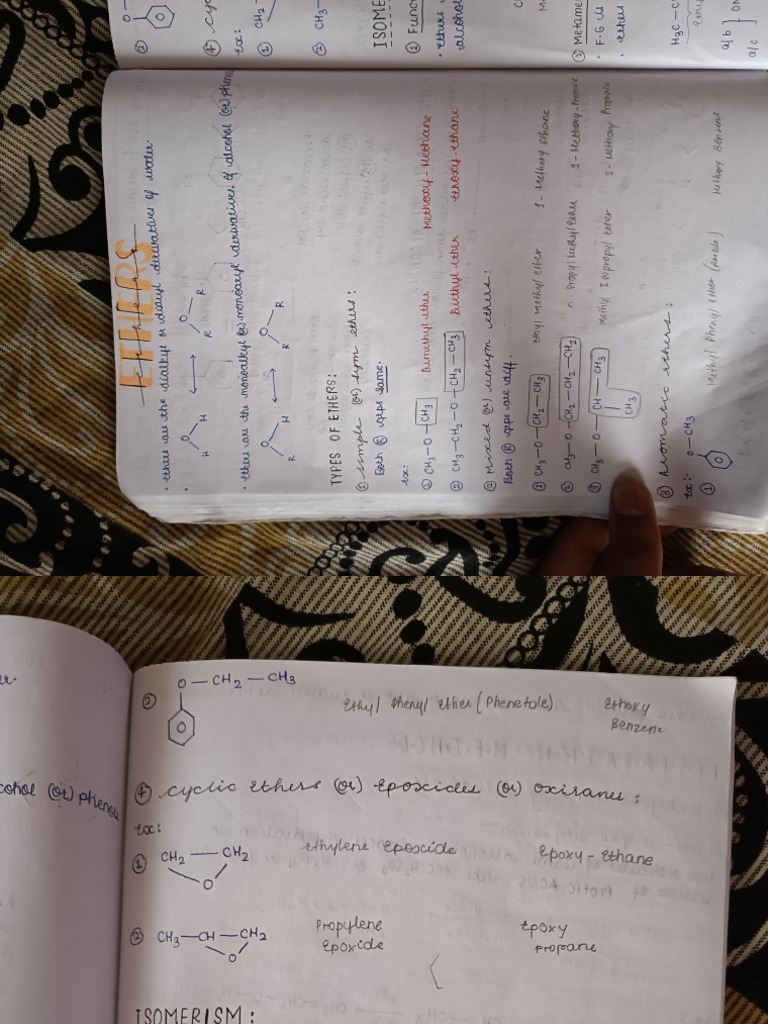 ETHERS
• Ethers are the dialkyl or diaryl derivatives of water.
• H O H ⟷ R O R
• Ethers are the monoalkyl (or) monoaryl derivatives of alcohol (or) pheno
R O H ⟷ R O R
TYPES OF ETHERS:
① Simple (or) sym ethers:
Both (R) grps same.
Ex:
① CH₃-O-CH₃ Dimethyl ether Methoxy-Methane
② CH₃-CH₂-O-CH₂-CH₃ Diethyl ether Ethoxy-ethane
② Mixed (or) unsym ethers:
Both (R) grps are diff.
① CH₃-O-CH₂-CH₃ Ethyl Methyl ether 1-Methoxy Ethane
② CH₃-O-CH₂-CH₂-CH₃ n-Propyl Methyl Ether 1-Methoxy-Propane
③ CH₃-O-CH-CH₃ Methyl Isopropyl ether 2-Methoxy Propane
CH₃
③ Aromatic ethers:
Ex: O-CH₃
① Methyl Phenyl Ether (Anisole) Methoxy Benzene
②
④ cyc
Ex:
① CH₂
② CH₃
ISOME
① Func
• Ethers
alcohol
③ Metame
• F.G is
• ethers
H₃C-C
a/b } On
a/c
cohol (or) phenol
② O-CH₂-CH₃ Ethyl Phenyl Ether (Phenetole) Ethoxy
Benzene
④ cyclic ethers (or) Epoxides (or) oxiranes:
Ex:
① CH₂-CH₂ Ethylene Epoxide Epoxy-Ethane
O
② CH₃-CH-CH₂ Propylene Epoxy
O Epoxide Propane
ISOMERISM: